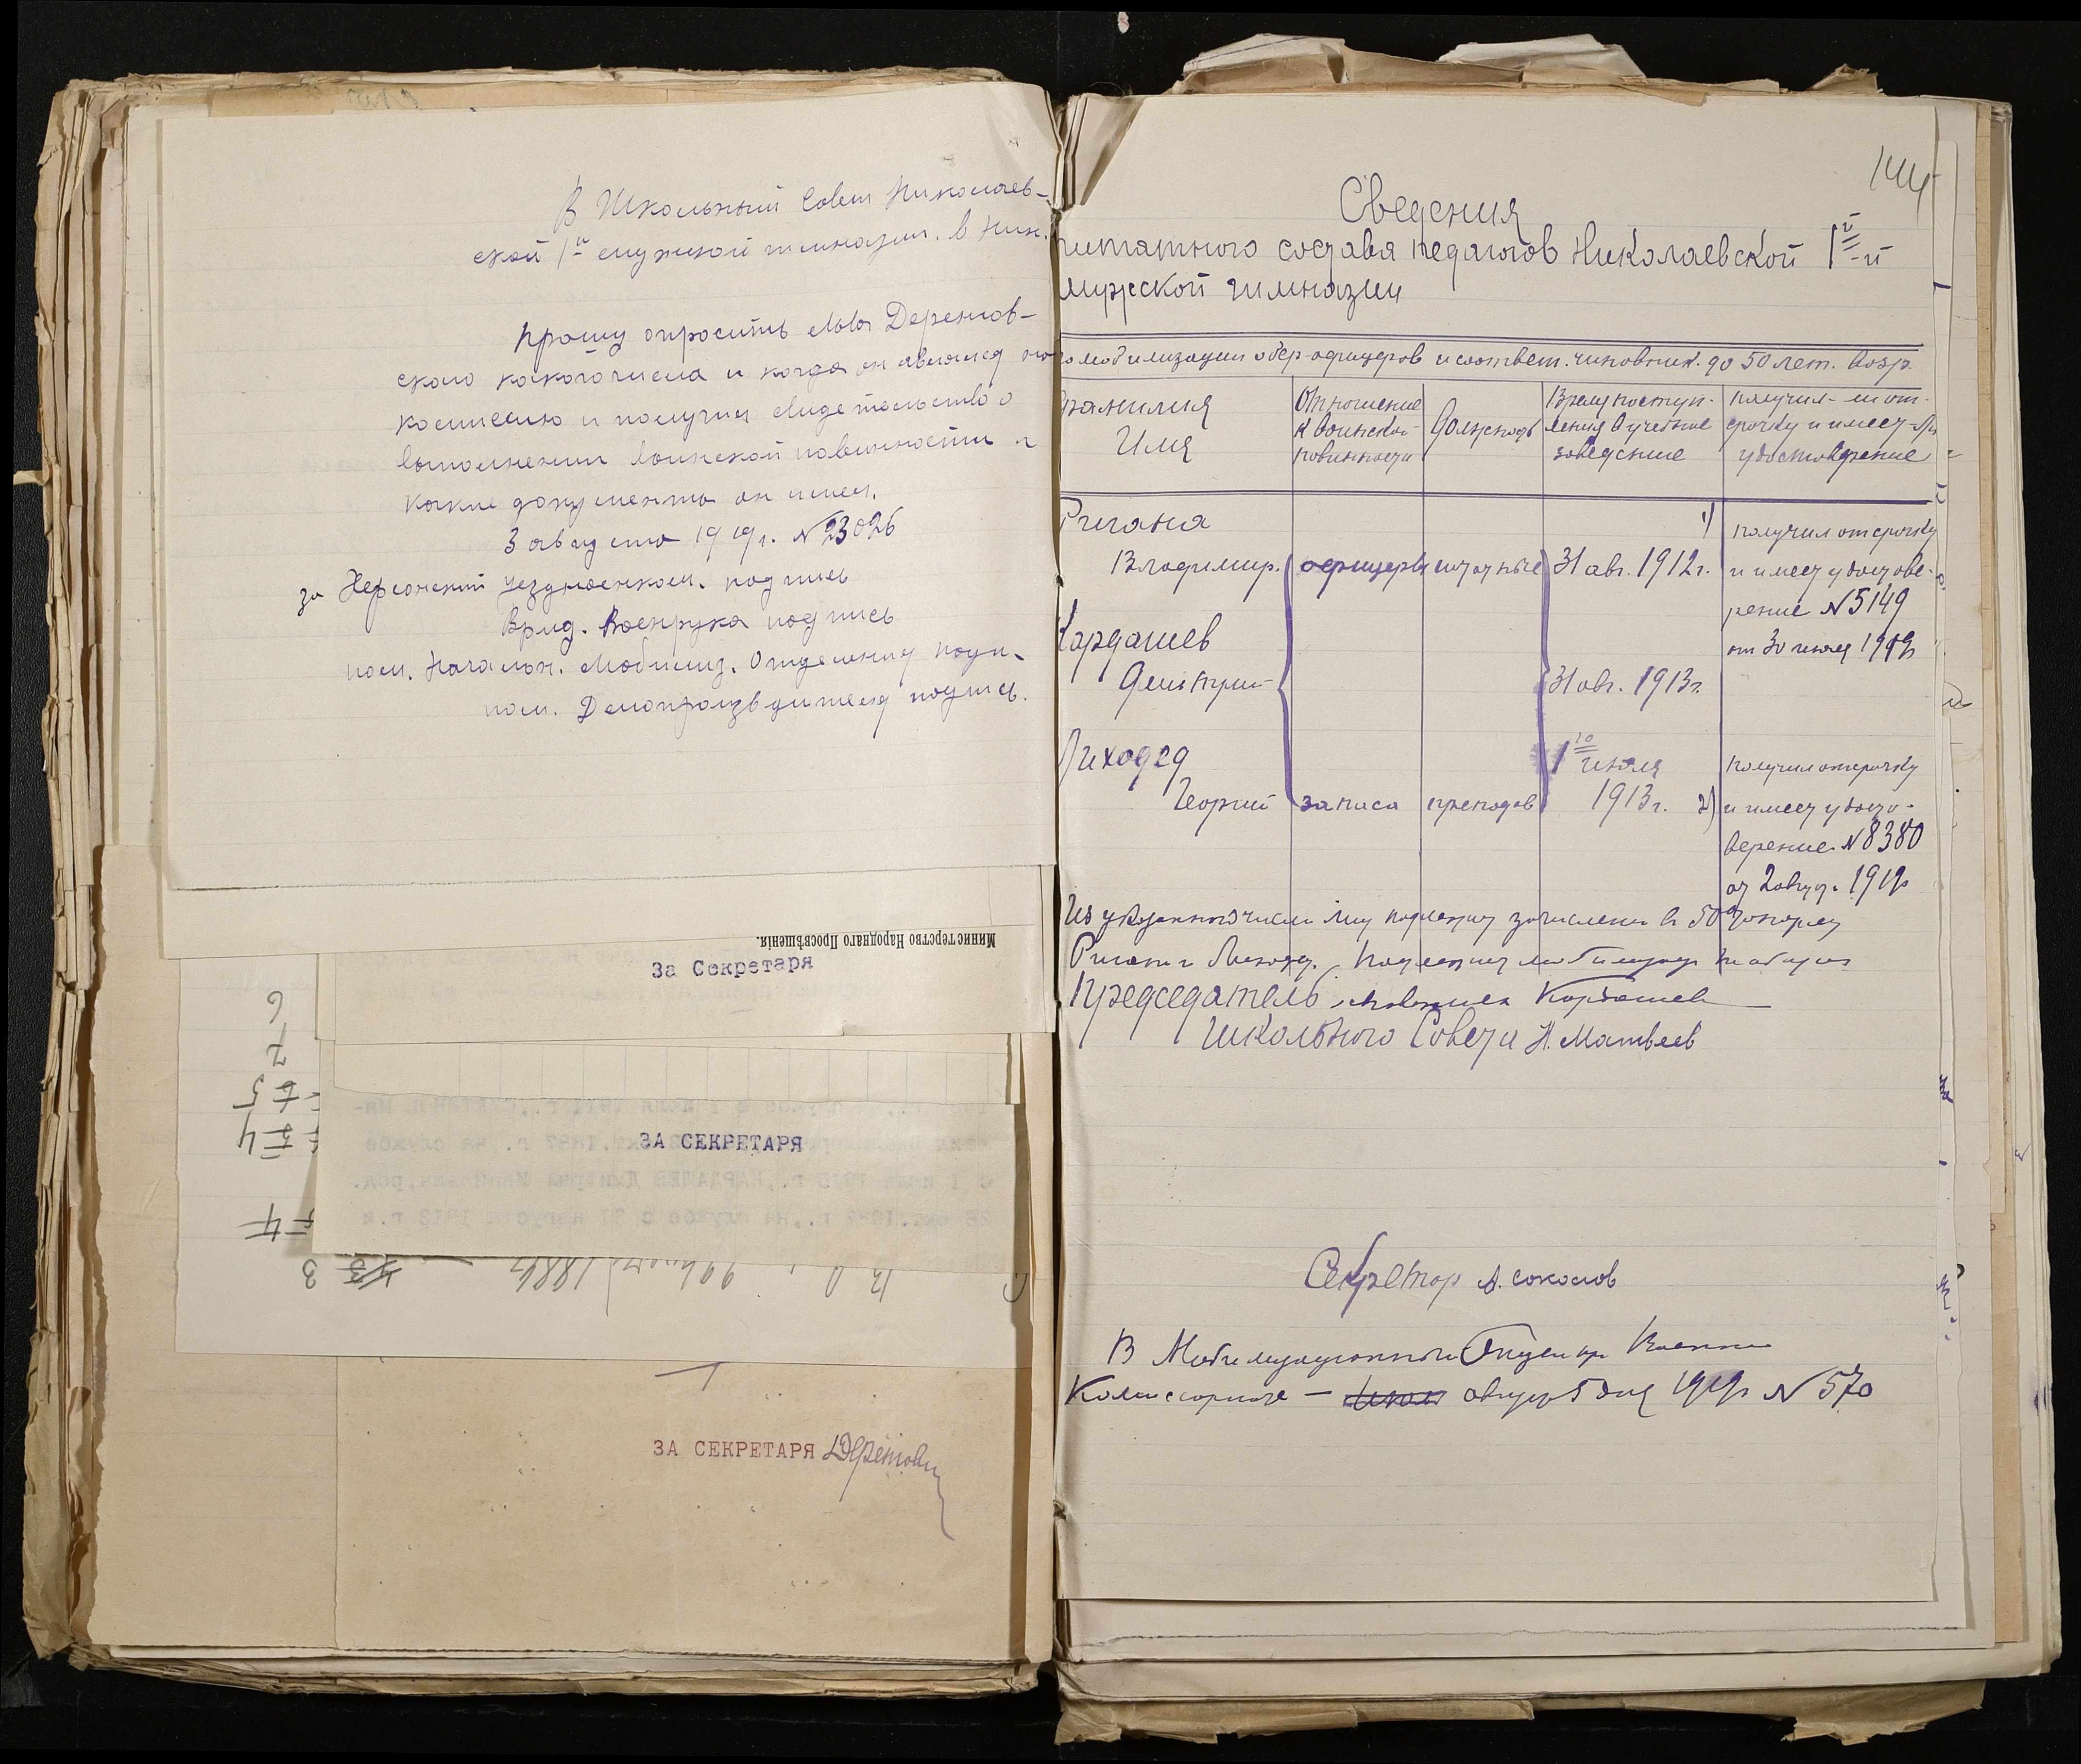 В Школьный Совет Николаев-
ской 1й мужской гимназии. в Ник.
Прошу опросить Льва Деренов-
ского какого числа и когда он являлся
комиссию и получил свидетельство о
выполнении воинской повинности и
какие документы он имеет.
3 августа 1919г. № 23026
за Херсонский уездвоенком. подпись
Врид. Военрука подпись
пом. Начальн. Мобилиз. Отделения подп.
пом. Делопроизводителя подпись.
Министерство Народнаго Просвѣщенія.
За Секретаря
6
7
5
4
ЗА СЕКРЕТАРЯ
4
3
ЗА СЕКРЕТАРЯ
144
Сведения
штатного состава педагогов Николаевской 1й
мужской гимназии
по мобилизации обер-офицеров и соответ. чиновник. до 50 лет. возр.
Фамилия
Имя
Отношение
к воинской
повинности
Должность
Время поступ-
ления в учебное
заведение
получил-ли от-
срочку и имеет-ли
удостоверение
Ригана
Владимир.
офицеры
штатные
31 авг. 1912г.
1) получил отсрочку
и имеет удостове-
рение № 5149
от 30 июля 1919г
Кардашев
Дмитрий
31 авг. 1913г.
Лиходед
Георгий
запаса
преподав
1го июля
1913г.
2) получил отсрочку
и имеет удосто-
верение № 8380
от 2 авгус. 1919г
Председатель Кардашев
Школьного Совета Н. Матвеев
Секретарь А. Соколов
В Мобилизационный Отдел при Военном
Комиссариате — август 5 дня 1919г № 570